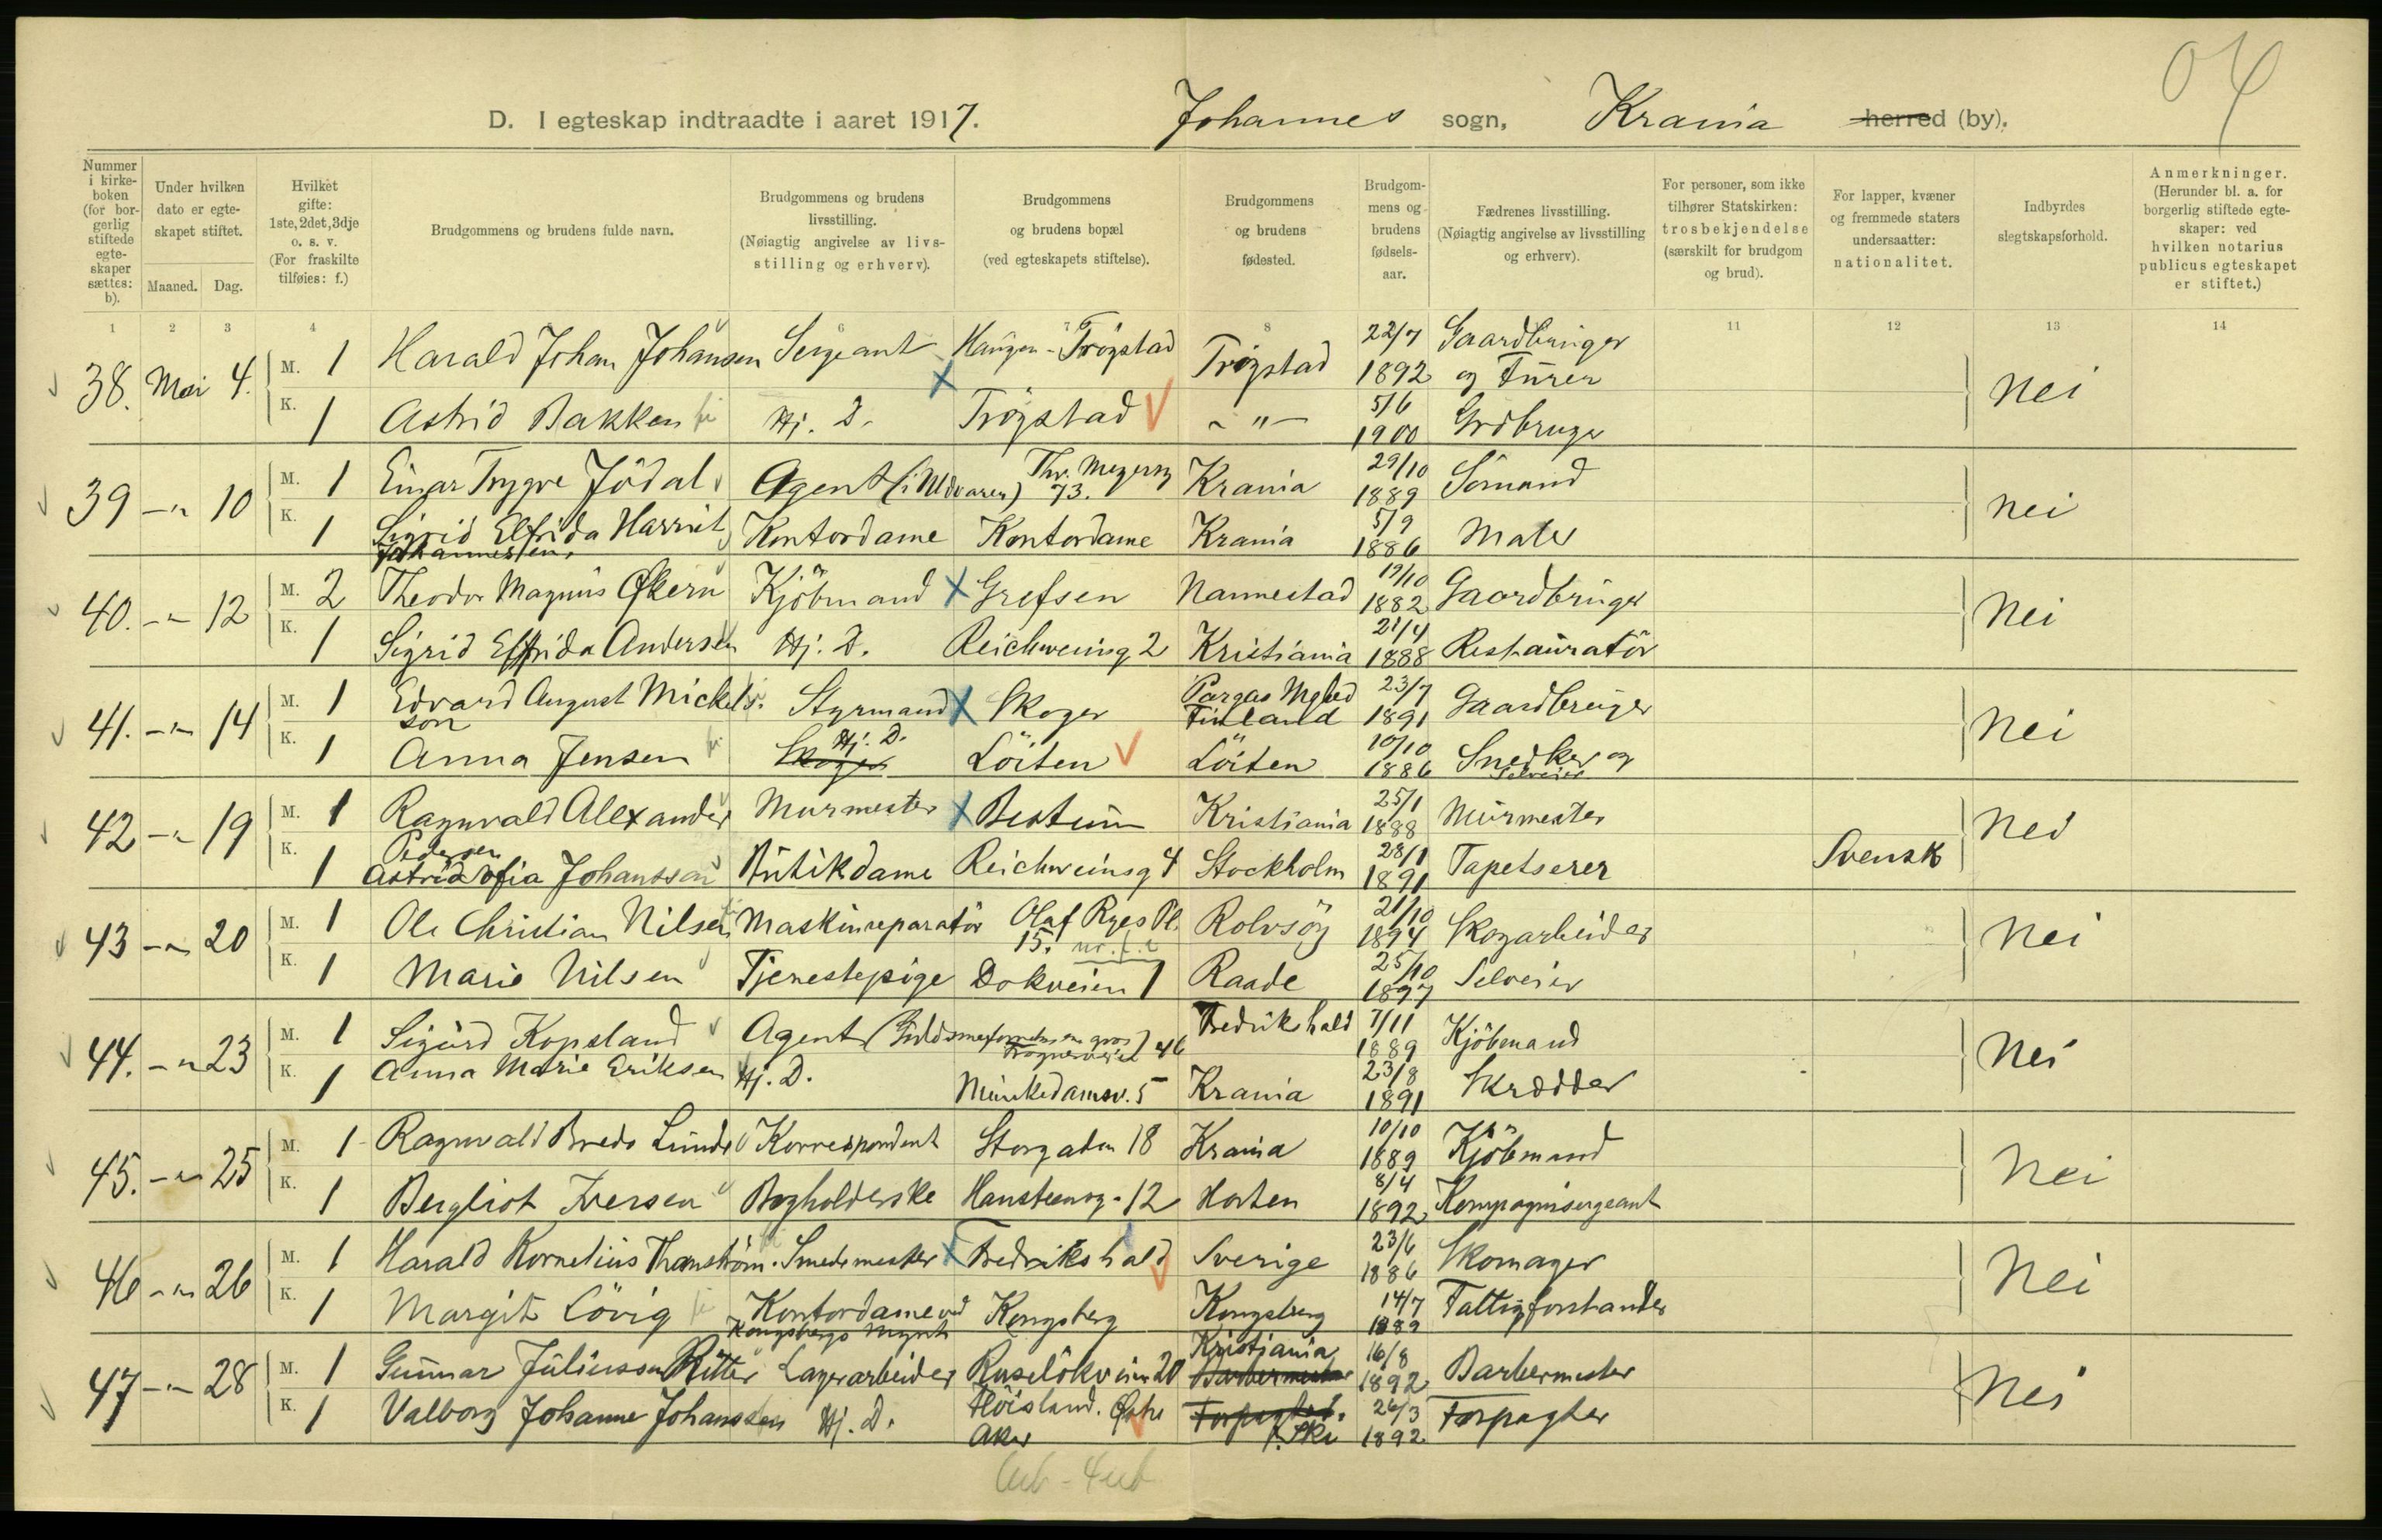 04
D. I egteskap indtraadte i aaret 1917. Johannes sogn, Krania herred (by).
Nummer i kirkeboken (for borgerlig stiftede egteskaper sættes: b).
Under hvilken dato er egteskapet stiftet.
Maaned. Dag.
Hvilket gifte: 1ste, 2det, 3dje o. s. v. (For fraskilte tilføies: f.)
Brudgommens og brudens fulde navn.
Brudgommens og brudens livsstilling. (Nøiagtig angivelse av livsstilling og erhverv).
Brudgommens og brudens bopæl (ved egteskapets stiftelse).
Brudgommens og brudens fødested.
Brudgommens og brudens fødselsaar.
Fædrenes livsstilling. (Nøiagtig angivelse av livsstilling og erhverv).
For personer, som ikke tilhører Statskirken: trosbekjendelse (særskilt for brudgom og brud).
For lapper, kvæner og fremmede staters undersaatter: nationalitet.
Indbyrdes slegtskapsforhold.
Anmerkninger. (Herunder bl. a. for borgerlig stiftede egteskaper: ved hvilken notarius publicus egteskapet er stiftet.)
1 2 3 4 6 7 8 11 12 13 14
38. Mai 4. M. 1 Harald Johan Johansen Sergeant Haugen - Trögstad Trögstad 22/7 1892 Gaardbruger og Furer Nei
K. 1 Astrid Bakken Hj. D. Trögstad - " - 5/6 1900 Grdbruger
39 - " - 10 M. 1 Einar Trygve Jödal Agent (i Uldvarer) Thv. Meyersg 73. Krania 29/10 1889 Sömand Nei
K. 1 Sigrid Elfrida Harriet Johannessen, Kontordame Kontordame Krania 5/9 1886 Maler
40. - " - 12 M. 2 Theodor Magnus Økern Kjöbmand X Grefsen Nannestad 19/10 1882 Gaardbruger Nei
K. 1 Sigrid Elfrida Andersen Hj. D. Reichweinsg 2 Kristiania 21/4 1888 Restauratör
41. - " - 14 M. 1 Edvard August Mickelsson Styrmand X Skoger Pargas Finland 23/7 1891 Gaardbruger Nei
K. 1 Anna Jensen Skoger Hj. D. Löiten Löiten 10/10 1886 Snedker og Selveier
42 - " - 19 M. 1 Ragnvald Alexander Pedersen Murmester X Bestum Kristiania 25/1 1888 Murmester Nei
K. 1 Astrid Sofia Johansson Butikdame Reichweinsg 4 Stockholm 28/1 1891 Tapetserer Svensk
43 - " - 20 M. 1 Ole Christian Nilsen Maskinreparatör Olaf Ryes Pl. 15. Rolvsöy 21/10 1894 Skogarbeider Nei
K. 1 Marie Nilsen Tjenestepige Dokveien 1 Raade 25/10 1897 Selveier
44. - " - 23 M. 1 Sigurd Kopsland Agent (Guldsmedforretn. en gros) Frognerveien 46 Fredrikshald 7/11 1889 Kjöbmand Nei
K. 1 Anna Marie Eriksen Hj. D. Munkedamsv. 5 Krania 23/8 1891 Skrædder
45. - " - 25 M. 1 Ragnvald Brede Lunde Korrespondent Storgaten 18 Krania 10/10 1889 Kjöbmand Nei
K. 1 Bergliot Iversen Bogholderske Hansteensg. 12 Horten 8/4 1892 Kompagnisergeant
46 - " - 26 M. 1 Harald Kornelius Thanström. Smedmester X Fredrikshald Sverige 23/6 1886 Skomager Nei
K. 1 Margit Lövig Kontordame ved Kongsbergs Mynt Kongsberg Kongsberg 14/7 1889 Fattigforstander
47 - " - 28 M. 1 Gunnar Juliusson Ritter Lagerarbeider Ruselökveien 20 Barbermester Kristiania 16/8 1892 Barbermester Nei
K. 1 Valborg Johanne Johanssen Hj. D. Höisland. Østre Aker Forpagter. Ski 26/3 1892 Forpagter